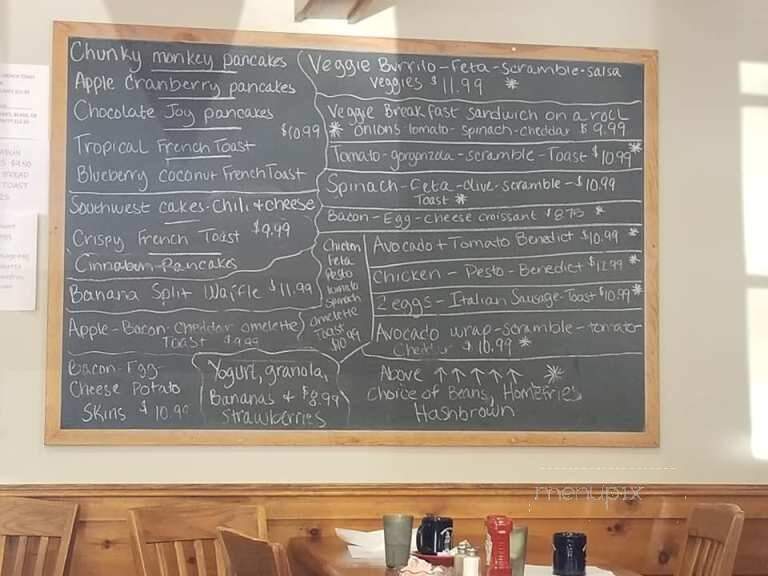 Chunky monkey pancakes
Apple Cranberry pancakes
Chocolate Joy pancakes
$10.99
Tropical French Toast
Blueberry coconut French Toast
Southwest cakes-chili & cheese
Crispy French Toast $9.99
Cinnabon-Pancakes
Banana Split Waffle $11.99
Apple-Bacon-Cheddar omelette
Toast $9.99
Bacon-Egg-
Cheese Potato
Skins $10.99
Yogurt, granola,
Bananas & $8.99
Strawberries
Chicken
Feta
Pesto
tomato
Spinach
omelette
Toast
$10.99
Veggie Burrito-Feta-scramble-salsa
veggies $11.99 *
Veggie Breakfast sandwich on a roll
* onions tomato-spinach-cheddar $9.99
Tomato-gorgonzola-scramble-Toast $10.99 *
Spinach-Feta-olive-scramble-$10.99
Toast *
Bacon-Egg-cheese croissant $8.75 *
Avocado + Tomato Benedict $10.99 *
Chicken-Pesto-Benedict $12.99 *
2 eggs-Italian Sausage-Toast $10.99 *
Avocado wrap-scramble-tomato
Cheddar $10.99 *
Above ↑↑↑↑↑ *
choice of Beans, Homefries
Hashbrown
menupix